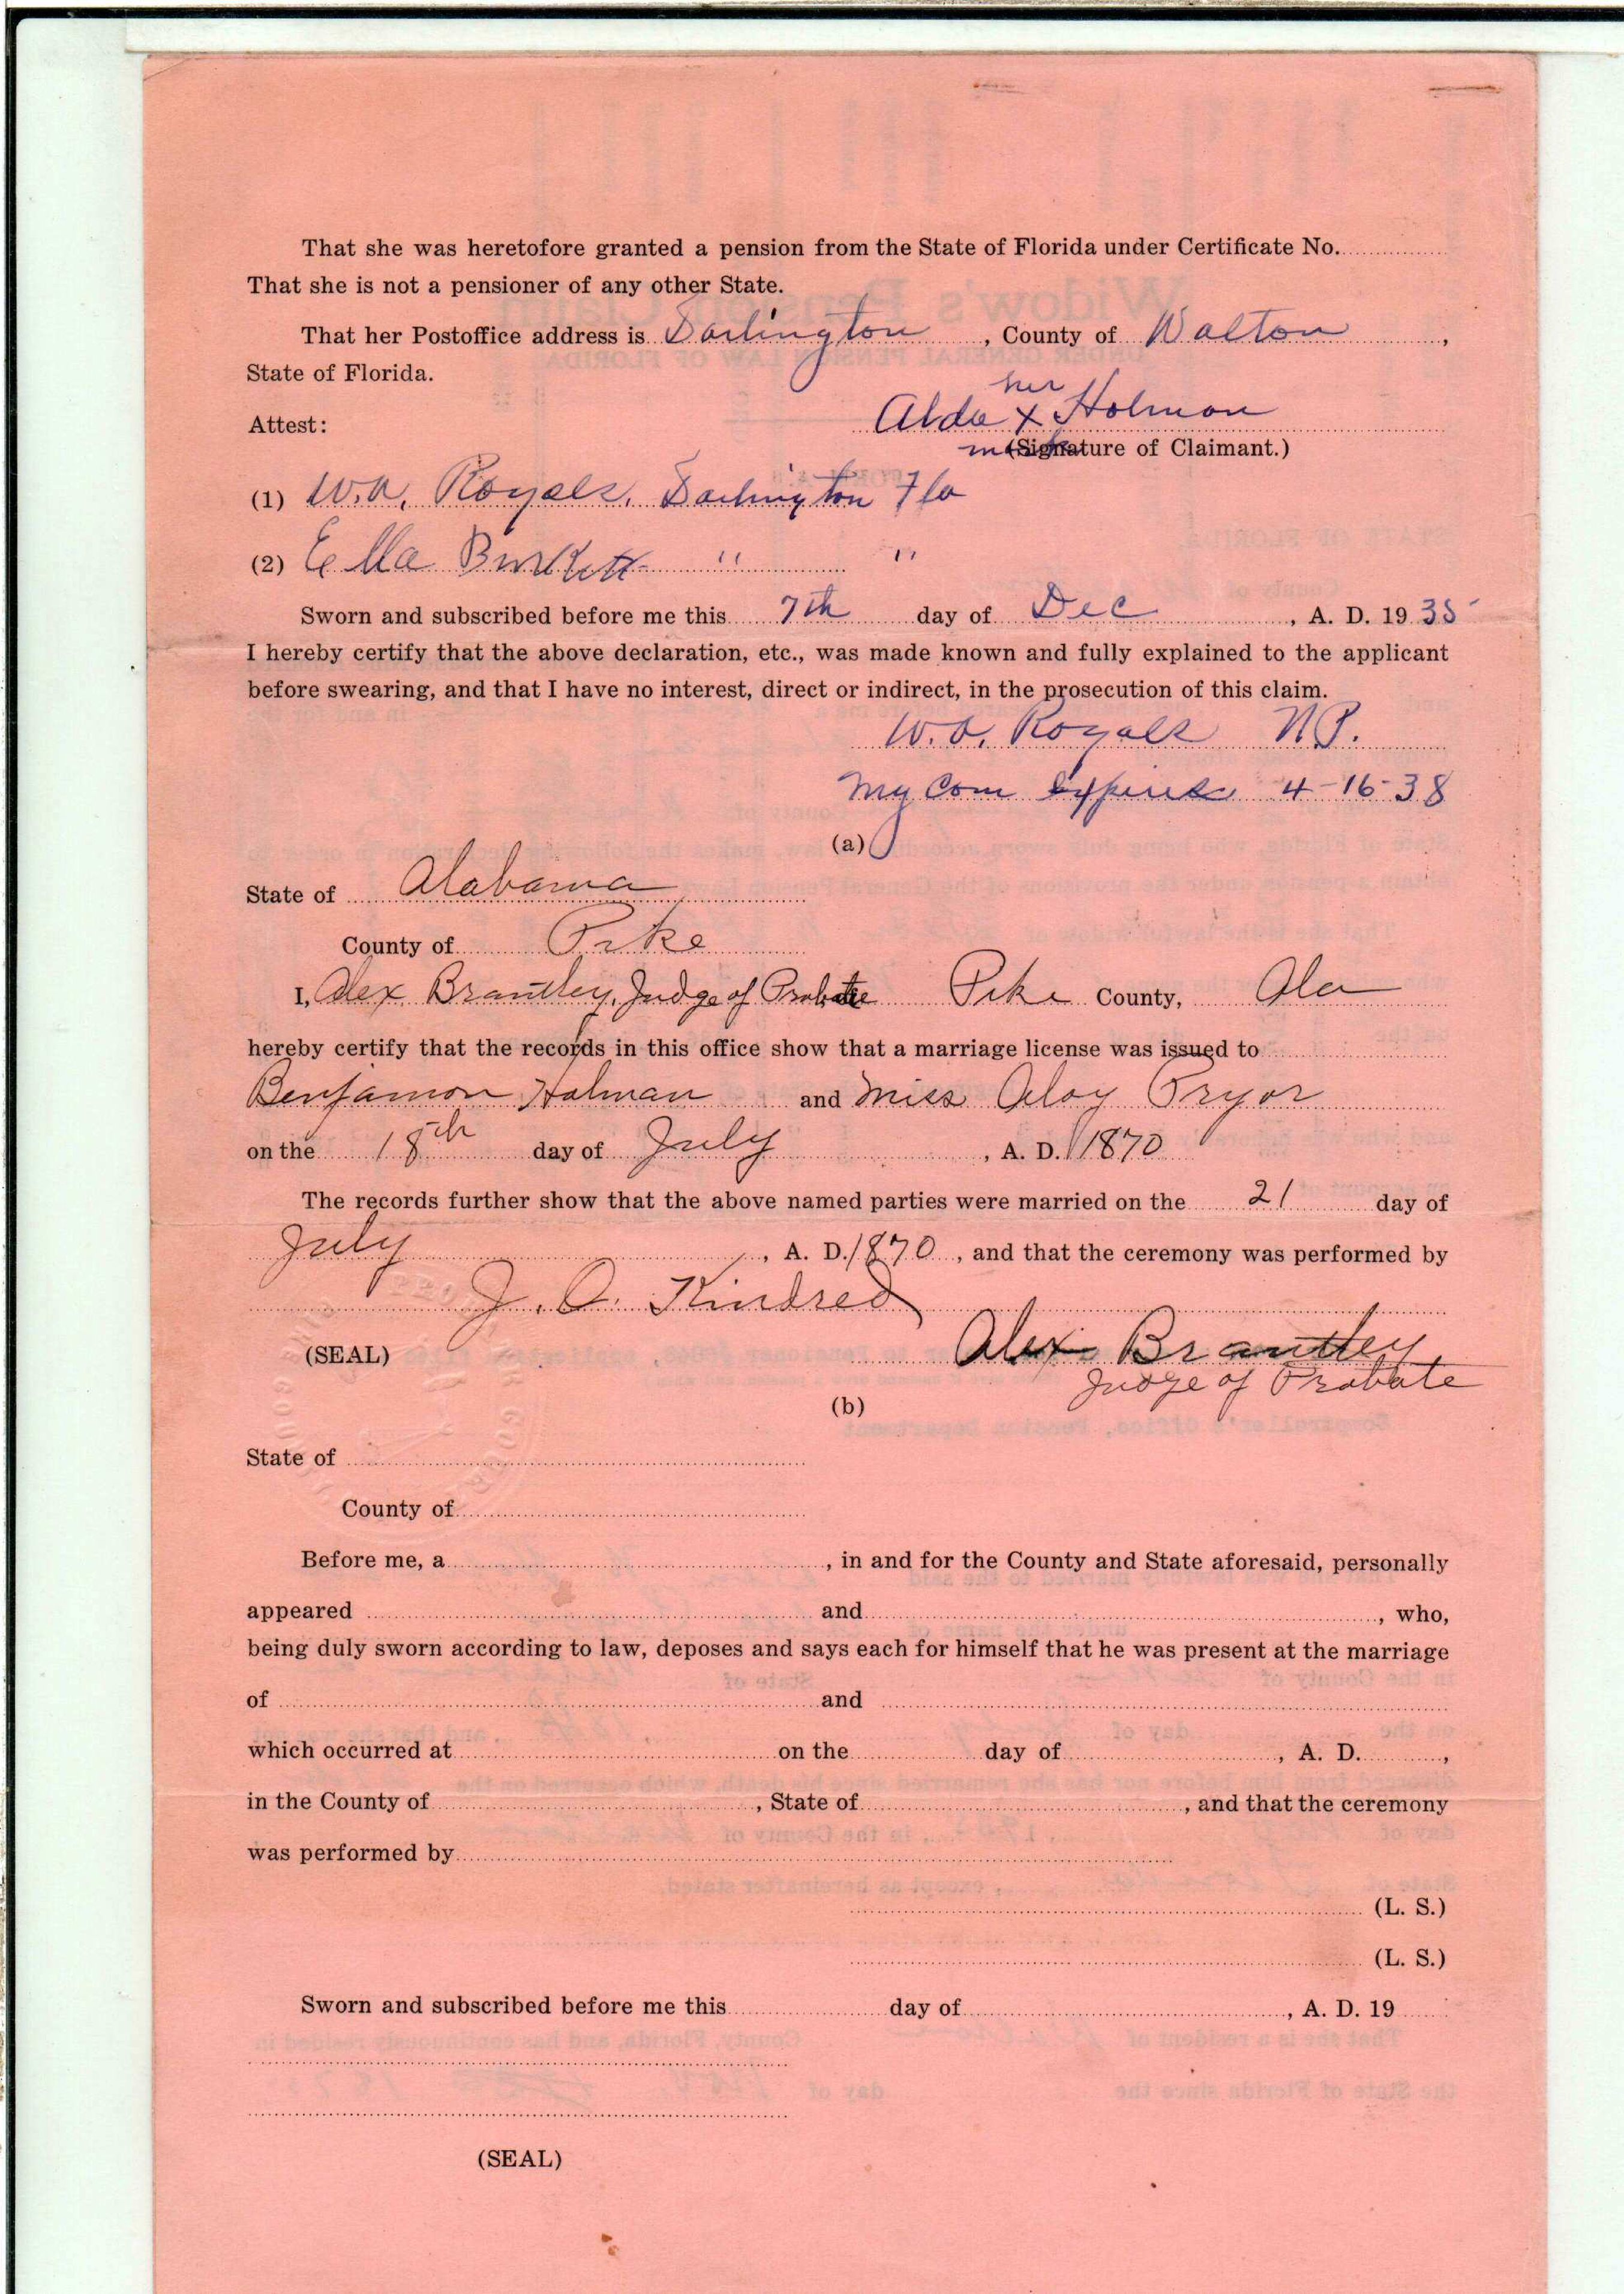 That she was heretofore granted a pension from the State of Florida under Certificate No.
That she is not a pensioner of any other State.
That her Postoffice address is Darlington, County of Walton,
State of Florida.
her
Attest: Alda x Holmon
mark (Signature of Claimant.)
(1) W.A. Royals, Darlington Fla
(2) Ella Burkett " "
Sworn and subscribed before me this 7th day of Dec, A. D. 1935
I hereby certify that the above declaration, etc., was made known and fully explained to the applicant
before swearing, and that I have no interest, direct or indirect, in the prosecution of this claim.
W.A. Royals N.P.
My Com Expires 4-16-38
(a)
State of Alabama
County of Pike
I, Alex Brantley, Judge of Probate Pike County, Ala
hereby certify that the records in this office show that a marriage license was issued to
Benjamon Holman and Miss Aloy Pryor
on the 18th day of July, A. D. 1870
The records further show that the above named parties were married on the 21 day of
July, A. D. 1870, and that the ceremony was performed by
J. O. Kindred
(SEAL) Alex Brantley
Judge of Probate
(b)
State of
County of
Before me, a, in and for the County and State aforesaid, personally
appeared and, who,
being duly sworn according to law, deposes and says each for himself that he was present at the marriage
of and
which occurred at on the day of, A. D.,
in the County of, State of, and that the ceremony
was performed by
(L. S.)
(L. S.)
Sworn and subscribed before me this day of, A. D. 19
(SEAL)